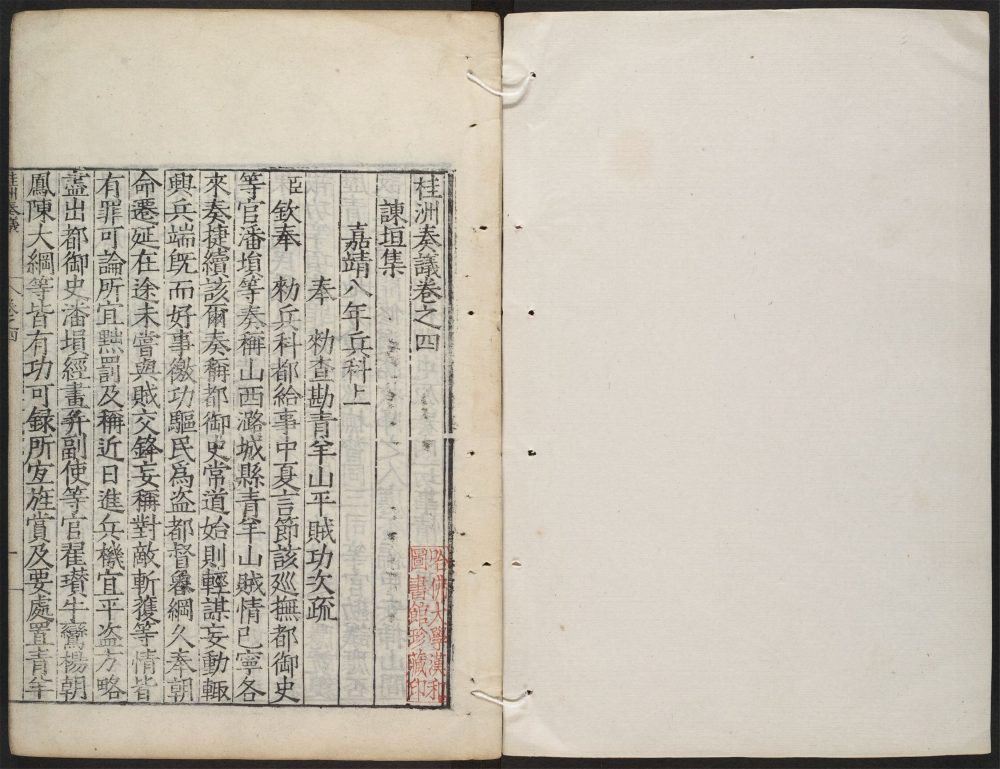 桂洲奏議卷之四
諫垣集
嘉靖八年兵科上
奉　勑查勘青羊山平賊功次疏
臣欽奉　勑兵科都給事中夏言節該廵撫都御史
等官潘塤等奏稱山西潞城縣青羊山賊情已寧各
來奏捷續該爾奏稱都御史常道始則輕謀妄動輙
興兵端旣而好事徼功驅民爲盗都督魯綱久奉朝
命遷延在途未嘗與賊交鋒妄稱對敵斬獲等情皆
有罪可論所宜黜罰及稱近日進兵機宜平盗方略
盖出都御史潘塤經畫并副使等官翟瓚牛鸞楊朝
鳳陳大綱等皆有功可録所宜旌賞及要處置青羊
桂洲奏議
卷之四
一
哈佛大學漢和
圖書館珍藏印